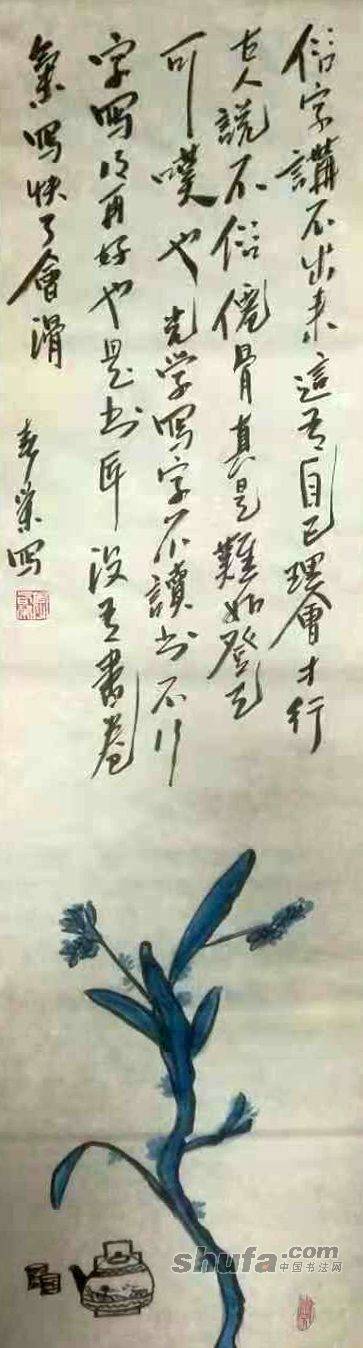 俗字講不出来這有自己理會才行
古人說不俗僊骨真是難如登天
可嘆也光学寫字不讀书不行
字寫得再好也是书匠没有書卷
氣寫快了會滑
春榮寫
shufa.com
中国书法网